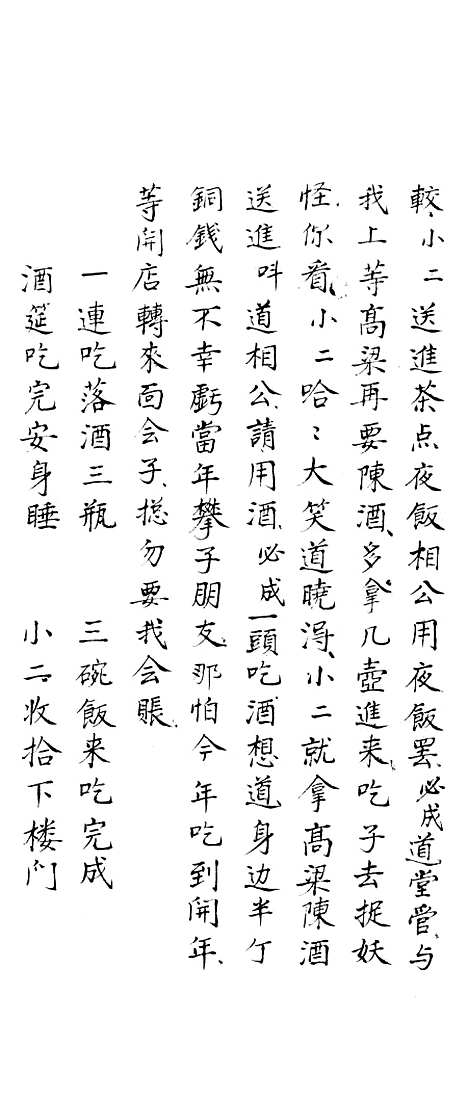 較、小二送進茶点夜飯相公用夜飯罢、必成道堂管、与
我上等高梁再要陳酒、多拿几壺進来、吃子去捉妖
怪、你看、小二哈〻大笑道曉淂、小二就拿高梁陳酒
送進呌道相公、請用酒、必成一頭吃酒想道、身边半丁
銅錢無不幸虧當年攀子朋友、那怕今年吃到開年、
等開店轉來面会子、揔勿要我会賬、
一連吃落酒三瓶　三碗飯来吃完成
酒筵吃完安身睡　小二收拾下楼门